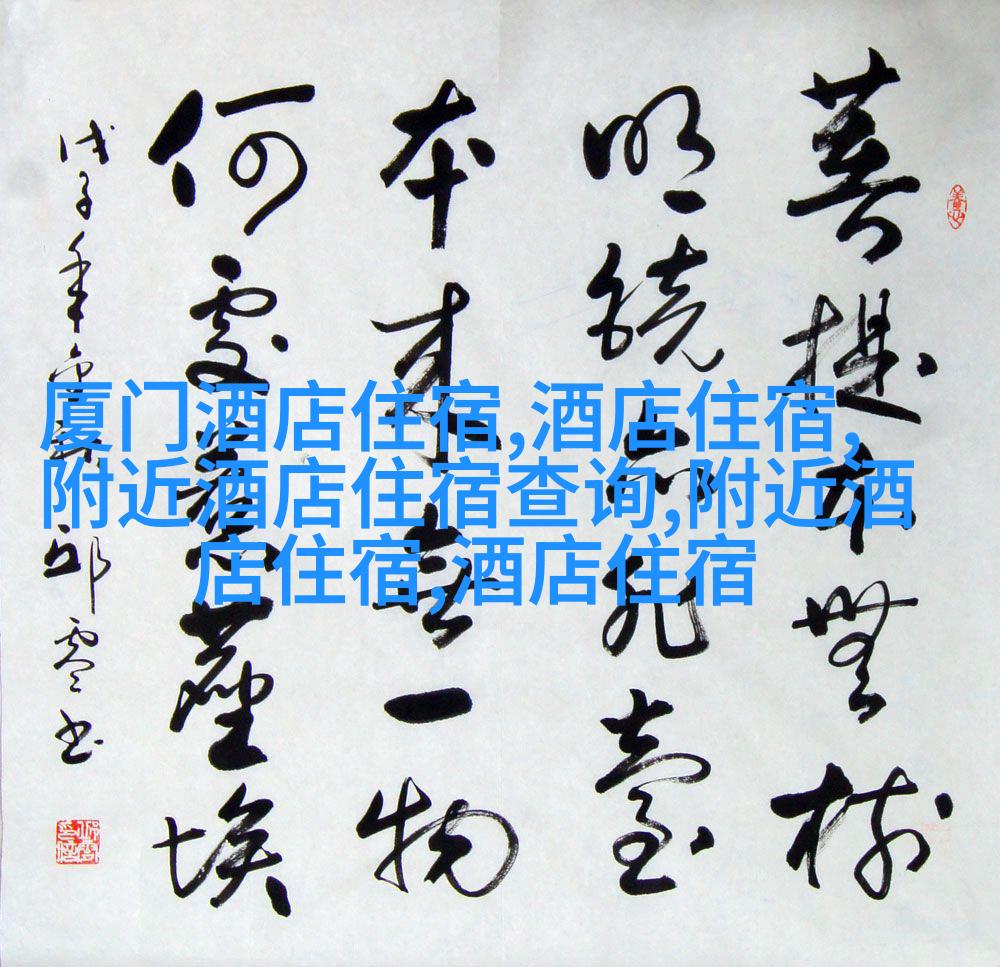 厦门酒店住宿,酒店住宿,
附近酒店住宿查询,附近酒
店住宿,酒店住宿
菩提本無樹
明鏡亦非臺
本來無一物
何處惹塵埃
戊子年 邱零书